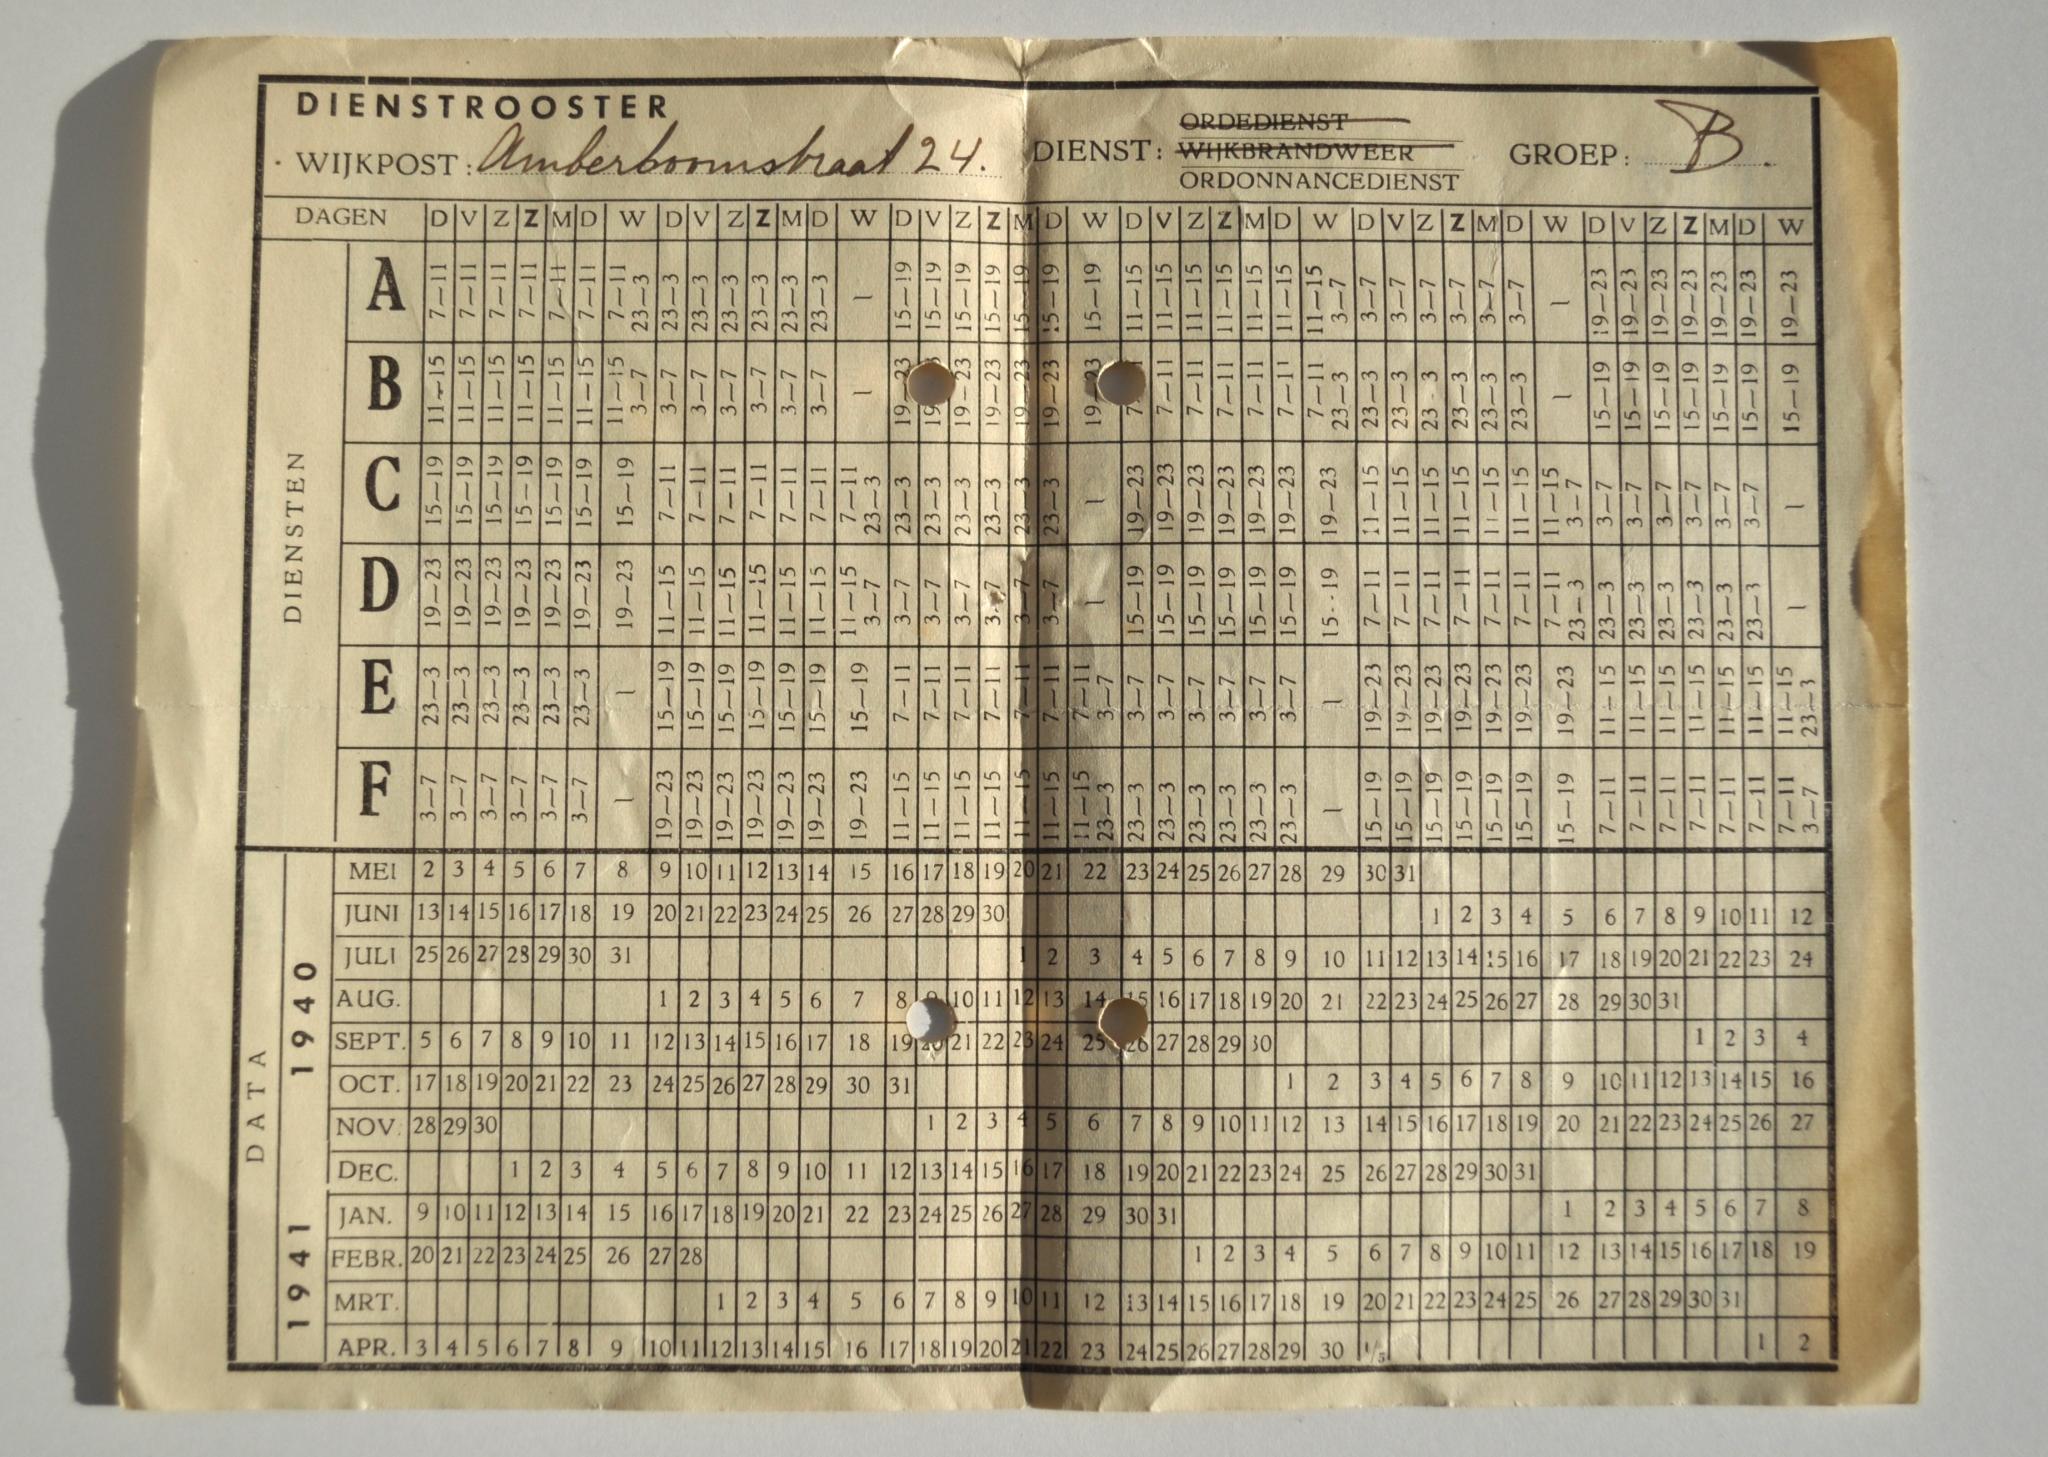 DIENSTROOSTER
WIJKPOST: Amberboomstraat 24. DIENST: ORDEDIENST WIJKBRANDWEER ORDONNANCEDIENST GROEP: B.
DAGEN D V Z Z M D W D V Z Z M D W D V Z Z M D W D V Z Z M D W D V Z Z M D W D V Z Z M D W
DIENSTEN
A 7—11 7—11 7—11 7—11 7—11 7—11 7—11 23—3 23—3 23—3 23—3 23—3 23—3 23—3 — 15—19 15—19 15—19 15—19 15—19 15—19 15—19 11—15 11—15 11—15 11—15 11—15 11—15 11—15 3—7 3—7 3—7 3—7 3—7 3—7 3—7 — 19—23 19—23 19—23 19—23 19—23 19—23 19—23
B 11—15 11—15 11—15 11—15 11—15 11—15 11—15 3—7 3—7 3—7 3—7 3—7 3—7 3—7 — 19—23 19—23 19—23 19—23 19—23 19—23 7—11 7—11 7—11 7—11 7—11 7—11 23—3 23—3 23—3 23 3 23—3 23—3 23—3 — 15—19 15—19 15—19 15—19 15—19 15—19 15—19
C 15—19 15—19 15—19 15—19 15—19 15—19 15—19 7—11 7—11 7—11 7—11 7—11 7—11 7—11 23—3 23—3 23—3 23—3 23—3 23—3 23—3 — 19—23 19—23 19—23 19—23 19—23 19—23 19—23 11—15 11—15 11—15 11—15 11—15 11—15 11—15 3—7 3—7 3—7 3—7 3—7 3—7 3—7 —
D 19—23 19—23 19—23 19—23 19—23 19—23 19—23 11—15 11—15 11—15 11—15 11—15 11—15 11—15 3—7 3—7 3—7 3—7 3—7 3—7 3—7 — 15—19 15—19 15—19 15—19 15—19 15—19 15—19 7—11 7—11 7—11 7—11 7—11 7—11 7—11 23—3 23—3 23—3 23—3 23—3 23—3 23—3 —
E 23—3 23—3 23—3 23—3 23—3 23—3 — 15—19 15—19 15—19 15—19 15—19 15—19 15—19 7—11 7—11 7—11 7—11 7—11 7—11 7—11 3—7 3—7 3—7 3—7 3—7 3—7 3—7 — 19—23 19—23 19—23 19—23 19—23 19—23 19—23 11—15 11—15 11—15 11—15 11—15 11—15 11—15 23—3
F 3—7 3—7 3—7 3—7 3—7 3—7 — 19—23 19—23 19—23 19—23 19—23 19—23 19—23 11—15 11—15 11—15 11—15 11—15 11—15 11—15 23—3 23—3 23—3 23—3 23—3 23—3 23—3 — 15—19 15—19 15—19 15—19 15—19 15—19 15—19 7—11 7—11 7—11 7—11 7—11 7—11 7—11 3—7
DATA
1940
MEI 2 3 4 5 6 7 8 9 10 11 12 13 14 15 16 17 18 19 20 21 22 23 24 25 26 27 28 29 30 31
JUNI 13 14 15 16 17 18 19 20 21 22 23 24 25 26 27 28 29 30 1 2 3 4 5 6 7 8 9 10 11 12
JULI 25 26 27 28 29 30 31 1 2 3 4 5 6 7 8 9 10 11 12 13 14 15 16 17 18 19 20 21 22 23 24
AUG. 1 2 3 4 5 6 7 8 9 10 11 12 13 14 15 16 17 18 19 20 21 22 23 24 25 26 27 28 29 30 31
SEPT. 5 6 7 8 9 10 11 12 13 14 15 16 17 18 19 20 21 22 23 24 25 26 27 28 29 30 1 2 3 4
OCT. 17 18 19 20 21 22 23 24 25 26 27 28 29 30 31 1 2 3 4 5 6 7 8 9 10 11 12 13 14 15 16
NOV. 28 29 30 1 2 3 4 5 6 7 8 9 10 11 12 13 14 15 16 17 18 19 20 21 22 23 24 25 26 27
DEC. 1 2 3 4 5 6 7 8 9 10 11 12 13 14 15 16 17 18 19 20 21 22 23 24 25 26 27 28 29 30 31
1941
JAN. 9 10 11 12 13 14 15 16 17 18 19 20 21 22 23 24 25 26 27 28 29 30 31 1 2 3 4 5 6 7 8
FEBR. 20 21 22 23 24 25 26 27 28 1 2 3 4 5 6 7 8 9 10 11 12 13 14 15 16 17 18 19
MRT. 1 2 3 4 5 6 7 8 9 10 11 12 13 14 15 16 17 18 19 20 21 22 23 24 25 26 27 28 29 30 31
APR. 3 4 5 6 7 8 9 10 11 12 13 14 15 16 17 18 19 20 21 22 23 24 25 26 27 28 29 30 1/5 1 2